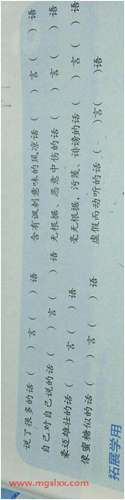 拓展学用
说了很多的话（ ）言（ ）语 含有讽刺意味的风凉话（ ）言（ ）语
自己对自己说的话（ ）言（ ）语 无根据、恶意中伤的话（ ）言（ ）语
豪迈雄壮的话（ ）言（ ）语 毫无根据，污蔑、诽谤的话（ ）言（ ）语
像蜜糖似的话（ ）言（ ）语 虚假而动听的话（ ）言（ ）语
www.mgslxx.com